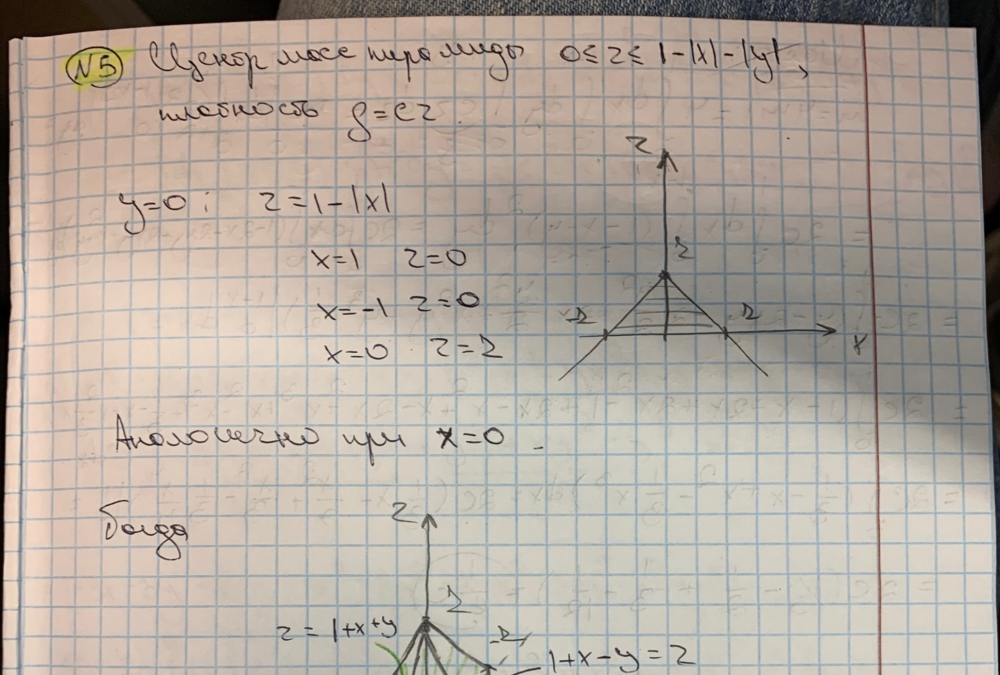 №5 Центр масс пирамиды 0≤z≤1-|x|-|y|,
плотность ρ=cz.
y=0: z=1-|x|
x=1 z=0
x=-1 z=0
x=0 z=1
z
1
-1
1
x
Аналогично при x=0.
Тогда
z
1
z=1+x+y
-1
1+x-y=z